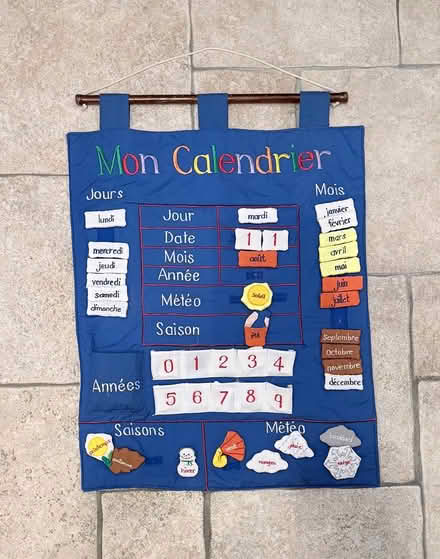 Mon Calendrier
Jours
Mois
lundi
mercredi
jeudi
vendredi
samedi
dimanche
Jour mardi
Date 1 1
Mois août
Année
Météo Soleil
Saison Été
janvier
février
mars
avril
mai
juin
juillet
Septembre
Octobre
novembre
décembre
Années
0 1 2 3 4
5 6 7 8 9
Saisons
Météo
hiver
vent
nuages
pluie
neige